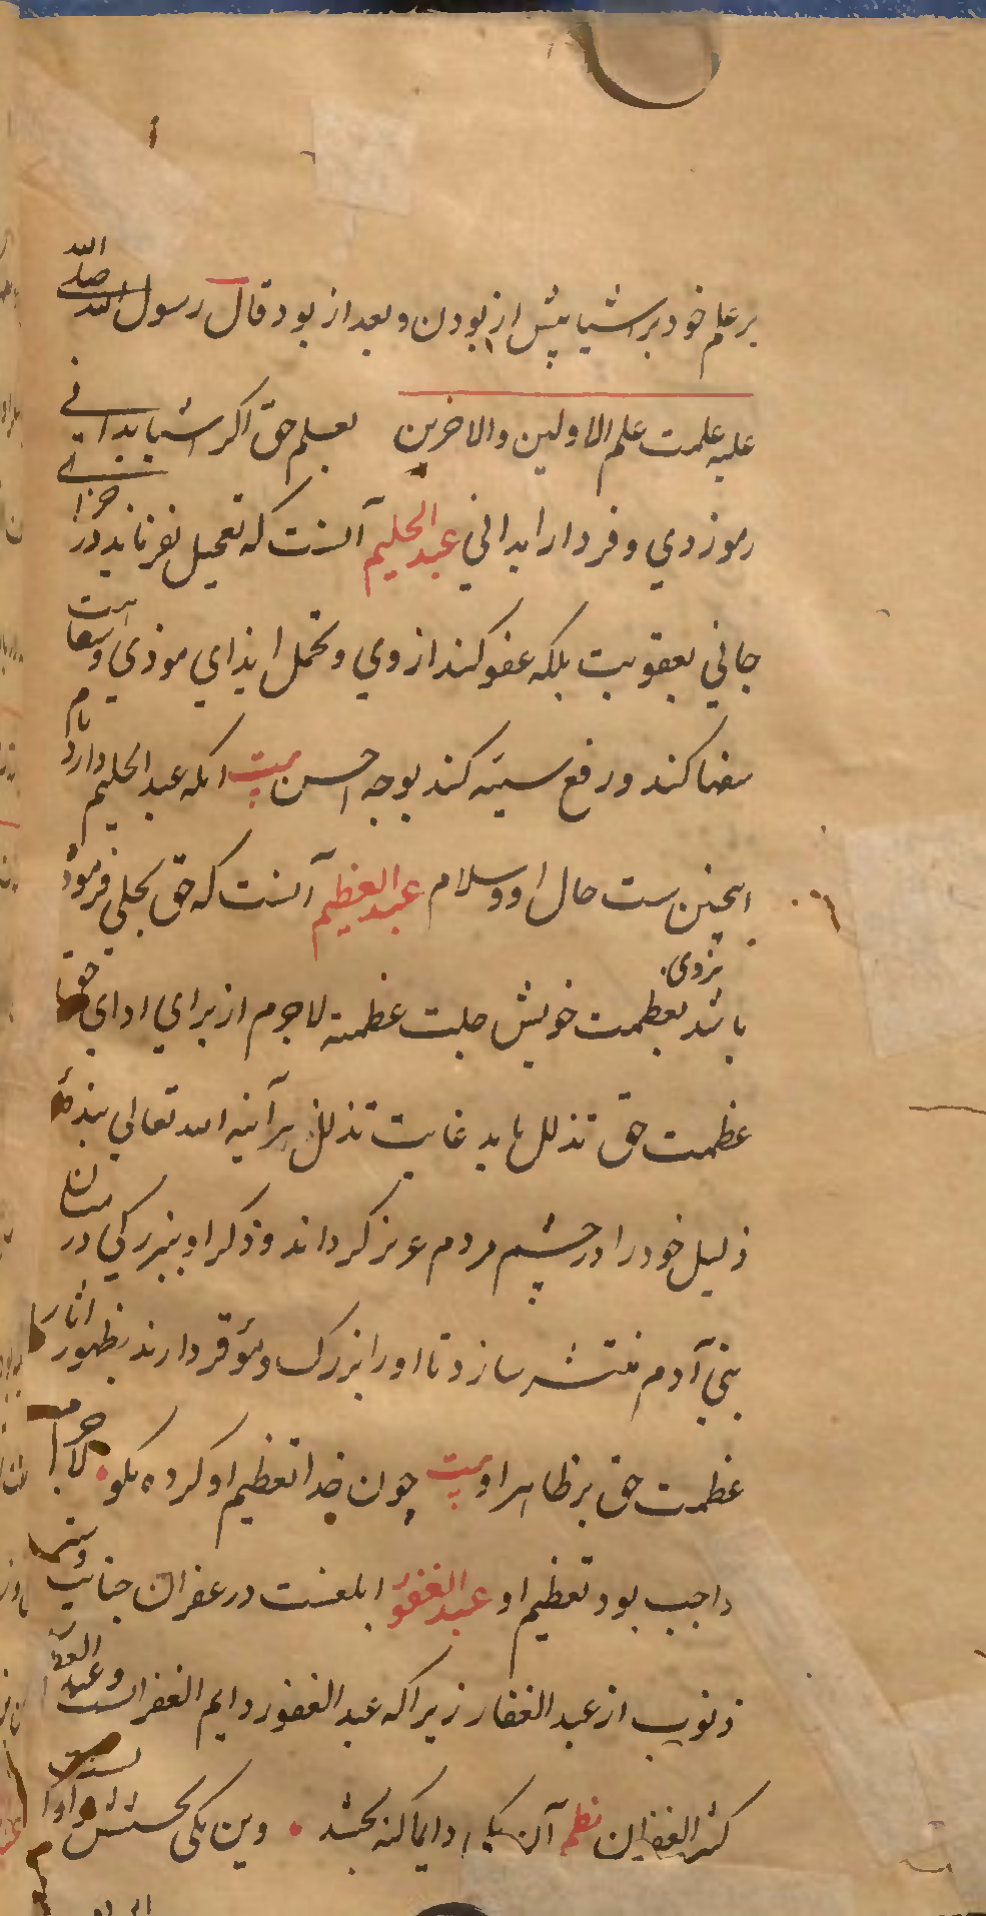 بر علم خود بر اشیا پیش از بودن و بعد از بود قال رسول الله صلی الله
علیه علمت علم الاولین والاخرین بعلم حق اکر اشیا بدانی
رموز دی و فردا را بدانی عبد الحلیم آنست که تعجیل نفرماید در جزای
جانی بعقوبت بلکه عفو کند از وی و تحمل ایذای موذی و سفاهت
سفها کند و رفع سیئه کند بوجه احسن بیت انکه عبد الحلیم دارد نام
اینچنین ست حال او و سلام عبد العظیم آنست که حق تجلی فرموده
باشد بروی بعظمت خویش جلت عظمته لا جرم از برای ادای حق
عظمت حق تذلل باید غایت تذلل هر آینه الله تعالی بندهٔ
ذلیل خود را در چشم مردم عزیز کرداند و ذکر او ببزرکی در میان
بنی آدم منتشر سازد تا او را بزرک و موقر دارند بظهور اثار
عظمت حق بر ظاهر او بیت چون خدا تعظیم او کرده نکو لا جرم
واجب بود تعظیم او عبد الغفور ابلغست در غفران جنایت و ستر
ذنوب از عبد الغفار زیرا که عبد الغفور دایم الغفرانست و عبد الغفار
کثیر الغفران نظم آن یکی دایما کنه بخشد وین یکی بخشش